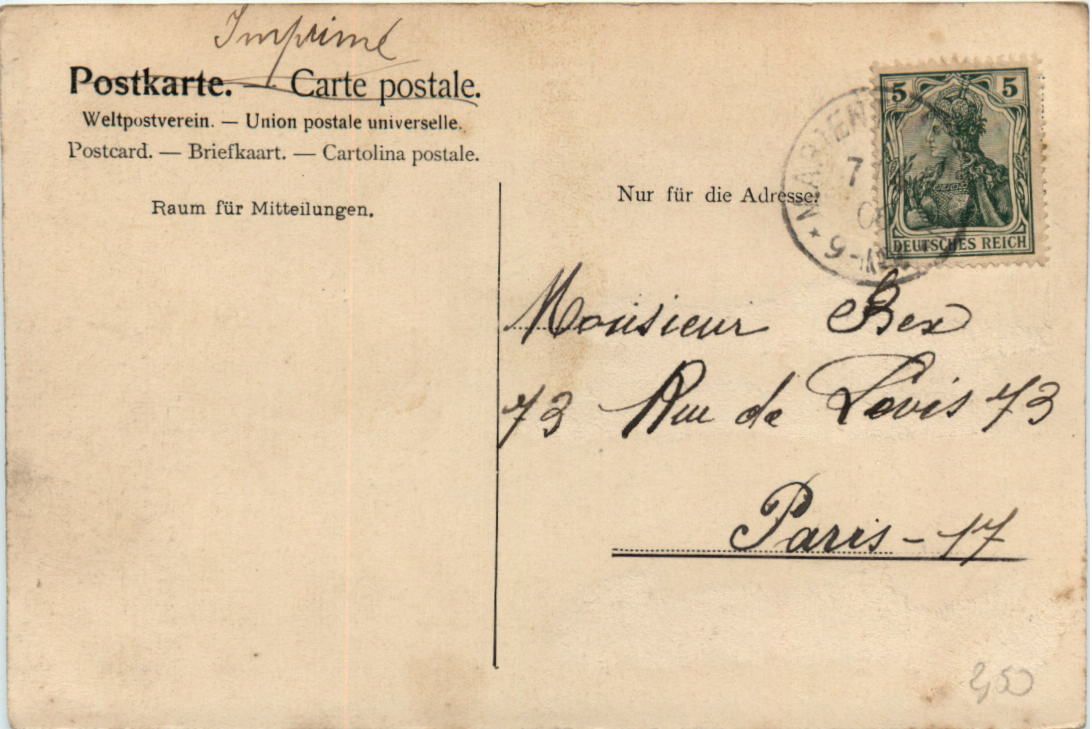 Imprimé
Postkarte. — Carte postale.
Weltpostverein. — Union postale universelle.
Postcard. — Briefkaart. — Cartolina postale.
Raum für Mitteilungen.
Nur für die Adresse.
5 5
DEUTSCHES REICH
7
Monsieur Bex
73 Rue de Lévis 73
Paris - 17
2,50